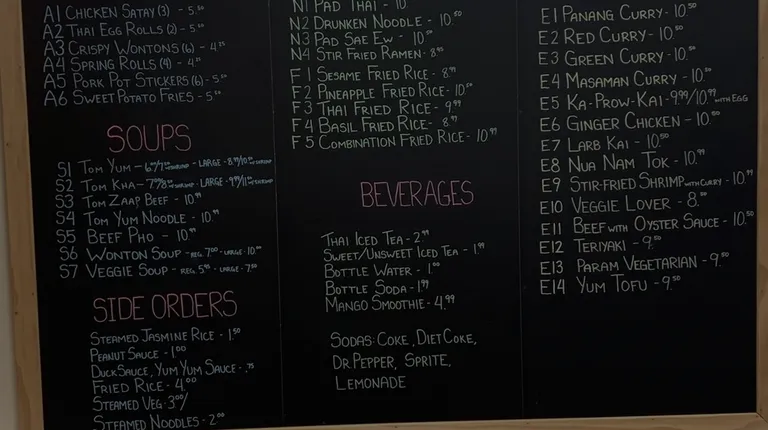 A1 CHICKEN SATAY (3) - 5.50
A2 THAI EGG ROLLS (2) - 5.00
A3 CRISPY WONTONS (6) - 4.25
A4 SPRING ROLLS (4) - 4.25
A5 PORK POT STICKERS (6) - 5.50
A6 SWEET POTATO FRIES - 5.00
SOUPS
S1 TOM YUM - LARGE -
S2 TOM KHA - LARGE -
S3 TOM ZAAP BEEF - 10.99
S4 TOM YUM NOODLE - 10.99
S5 BEEF PHO - 10.99
S6 WONTON SOUP - REG. 7.00 - LARGE - 10.00
S7 VEGGIE SOUP - REG. 5.95 - LARGE - 7.50
SIDE ORDERS
STEAMED JASMINE RICE - 1.50
PEANUT SAUCE - 1.00
DUCK SAUCE, YUM YUM SAUCE - .75
FRIED RICE - 4.00
STEAMED VEG - 3.00/
STEAMED NOODLES - 2.00
N1 PAD THAI - 10.
N2 DRUNKEN NOODLE - 10.50
N3 PAD SAE EW - 10.50
N4 STIR FRIED RAMEN - 8.95
F1 SESAME FRIED RICE - 8.99
F2 PINEAPPLE FRIED RICE - 10.50
F3 THAI FRIED RICE - 9.99
F4 BASIL FRIED RICE - 8.99
F5 COMBINATION FRIED RICE - 10.99
BEVERAGES
THAI ICED TEA - 2.99
SWEET/UNSWEET ICED TEA - 1.99
BOTTLE WATER - 1.00
BOTTLE SODA - 1.99
MANGO SMOOTHIE - 4.99
SODAS: COKE, DIET COKE,
DR. PEPPER, SPRITE,
LEMONADE
E1 PANANG CURRY - 10.50
E2 RED CURRY - 10.50
E3 GREEN CURRY - 10.50
E4 MASAMAN CURRY - 10.50
E5 KA-PROW-KAI - 9.99/10.99 WITH EGG
E6 GINGER CHICKEN - 10.50
E7 LARB KAI - 10.50
E8 NUA NAM TOK - 10.99
E9 STIR-FRIED SHRIMP WITH CURRY - 10.99
E10 VEGGIE LOVER - 8.50
E11 BEEF WITH OYSTER SAUCE - 10.50
E12 TERIYAKI - 9.50
E13 PARAM VEGETARIAN - 9.50
E14 YUM TOFU - 9.50